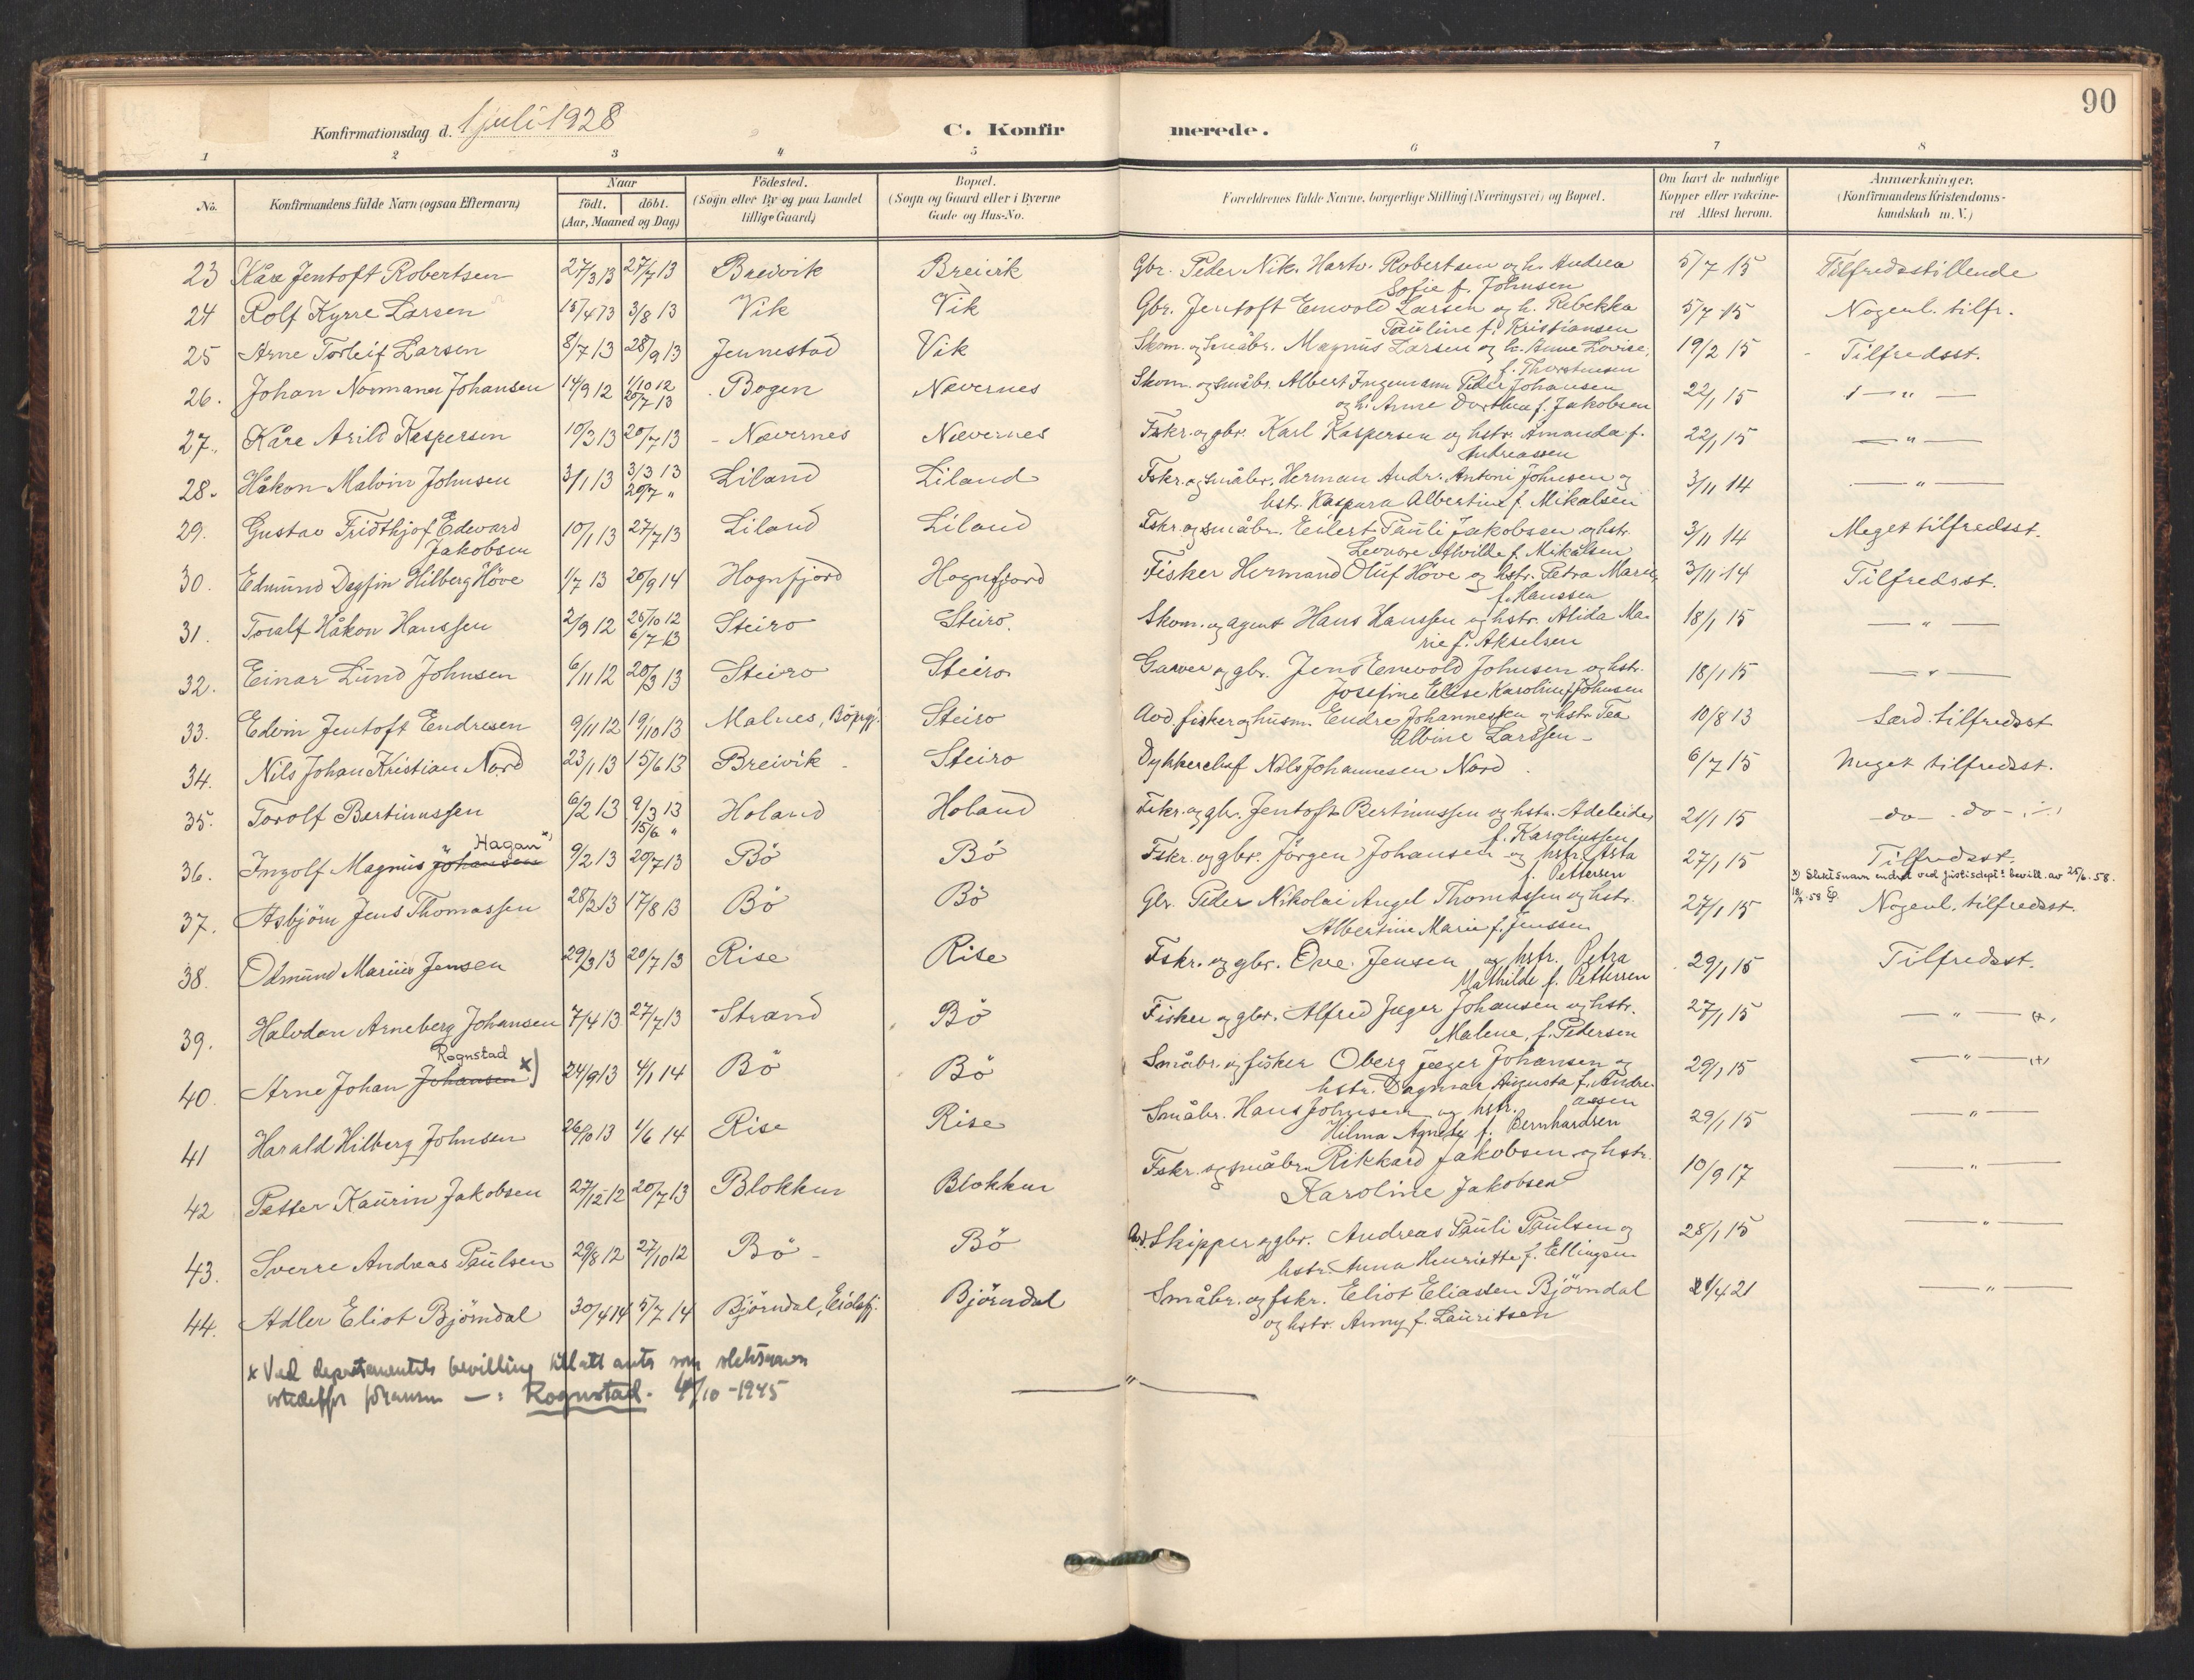 90
Konfirmationsdag d. 1 juli 1928 C. Konfirmerede.
1 2 3 4 5 6 7 8
No. Konfirmandens fulde Navn (ogsaa Efternavn) Naar født. døbt. (Aar, Maaned og Dag) Fødested. (Sogn eller By og paa Landet tillige Gaard) Bopæl. (Sogn og Gaard eller i Byerne Gade og Hus-No. Forældrenes fulde Navne, borgerlige Stilling (Næringsvei) og Bopæl. Om havt de naturlige Kopper eller vakcineret Attest herom. Anmærkninger. (Konfirmandens Kristendomskundskab m. V.)
23 Kåre Jentoft Robertsen 27/3 13 27/7 13 Breivik Breivik Gbr. Peder Nik. Hartv. Robertsen og h. Andrea 5/7 15 Tilfredsstillende
Sofie f. Johnsen
24 Rolf Kyrre Larsen 15/4 13 3/8 13 Vik Vik Gbr. Jentoft Enevold Larsen og h. Rebekka 5/7 15 Nogenl. tilfr.
Pauline f. Kristiansen
25 Arne Torleif Larsen 8/7 13 28/9 13 Jennestad Vik Skom. og småbr. Magnus Larsen og h. Anne Lovise, 19/2 15 Tilfredsst.
f. Thorstensen
26. Johan Normann Johansen 14/9 12 1/10 12 Bogen Nævernes Skom. og småbr. Albert Ingemann Peder Johansen 22/1 15 — " —
20/7 13 og h. Anne Dorthea f. Jakobsen
27. Kåre Arild Kaspersen 10/3 13 20/7 13 - Nævernes Nævernes Fskr. og gbr. Karl Kaspersen og hstr. Amanda f. 22/1 15 — " —
Andreassen
28. Håkon Malvin Johnsen 3/1 13 3/3 13 Liland Liland Fskr. og småbr. Herman Andr. Antoni Johnsen og 3/11 14 — " —
20/7 " hstr. Kaspara Albertine f. Mikalsen
29. Gustav Fridthjof Edvard 10/1 13 27/7 13 Liland Liland Fskr. og småbr. Eilert Pauli Jakobsen og hstr. 3/11 14 Meget tilfredsst.
Jakobsen Leonore Alvilde f. Mikalsen
30. Edmund Dagfin Hilberg Höve 1/7 13 20/9 14 Hognfjord Hognfjord Fisker Hermand Oluf Höve og hstr. Petra Marie, 3/11 14 Tilfredsst.
f. Hanssen
31. Toralf Håkon Hanssen 2/9 12 26/10 12 Steiro Steiro. Skom. og agent Hans Hanssen og hstr. Alida Ma- 18/1 15 — " —
6/7 13 rie f. Akselsen
32. Einar Lund Johnsen 6/11 12 20/3 13 Steiro Steiro Garver og gbr. Jens Enevold Johnsen og hstr. 18/1 15 — " —
Josefine Elise Karoline f. Johnsen
33. Edvin Jentoft Endresen 9/11 12 19/10 13 Malnes, Böprgj. Steiro Avd. fisker og husm. Endre Johannessen og hstr. Tea 10/8 13 Særd. tilfredsst
Albine Larssen -
34. Nils Johan Kristian Nord 23/1 13 15/6 13 Breivik - Steiro Dykkerchef Nils Johannesen Nord. 6/7 15 Meget tilfredsst.
35. Torolf Bertinussen 6/2 13 9/3 13 Holand Holand Fskr. og gbr. Jentoft Bertinussen og hstr. Adeleide, 21/1 15 - do - - do -
15/6 " f. Karoliussen
Hagan x)
36. Ingolf Magnus Johansen 9/2 13 20/7 13 Bö Bö Fskr. og gbr. Jörgen Johansen og hstr. Asta 27/1 15 Tilfredsst.
f. Pettersen x) Slektsnavn endret ved Justisdept's bevill. av 25/6. 58.
37. Asbjörn Jens Thomassen 28/2 13 17/8 13 Bö Bö Gbr. Peder Nikolai Angel Thomassen og hstr. 27/1 15 Nogenl. tilfredsst.
Albertine Marie f. Jenssen
38. Odmund Marius Jensen 29/3 13 20/7 13 Rise Rise Fskr. og gbr. Ove Jensen og hstr. Petra 29/1 15 Tilfredsst.
Mathilde f. Pettersen
39. Halvdan Arneberg Johansen 7/4 13 27/7 13 Strand Bö Fisker og gbr. Alfred Jæger Johansen og hstr. 27/1 15 — " —
Malene, f. Pedersen
Rognstad x)
40. Arne Johan Johansen 24/9 13 4/1 14 Bö Bö Småbr. og fisker Oberg Jæger Johansen og 29/1 15 — " —
hstr. Dagmar Augusta f. Andre-
assen
41 Harald Hilberg Johnsen 26/10 13 1/6 14 Rise Rise Småbr. Hans Johnsen og hstr. 29/1 15 — " —
Hilma Agnete f. Bernhardsen
42 Petter Kaurin Jakobsen 27/12 12 20/7 13 Blokken Blokken Fskr. og småbr. Rikkard Jakobsen og hstr. 10/9 17 — " —
Karoline Jakobsen
43. Sverre Andreas Paulsen 29/8 12 27/10 12 Bö - Bö Avd. Skipper og gbr. Andreas Pauli Paulsen og 28/1 15 — " —
hstr. Anna Henriette f. Ellingsen
44. Adler Eliot Björndal 30/4 14 5/7 14 Björndal, Eidsfj. Björndal Småbr. og fskr. Eliot Eliassen Björndal 21/4 21 — " —
og hstr. Anny f. Lauritsen
x Ved departementets bevilling tillatt anta som slektsnavn
istedetfor Johansen —: Rognstad. 4/10 - 1945
— " —